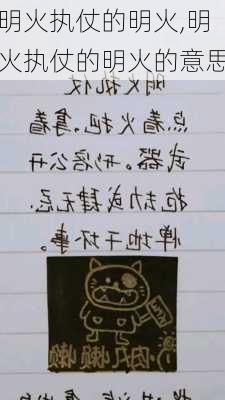 明火执仗的明火,明
火执仗的明火的意思
明火执仗
点着火把,拿着
武器。形容公开
抢劫或肆无忌
惮地干坏事。